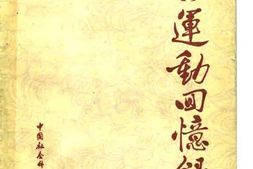 運動回憶
中国社会